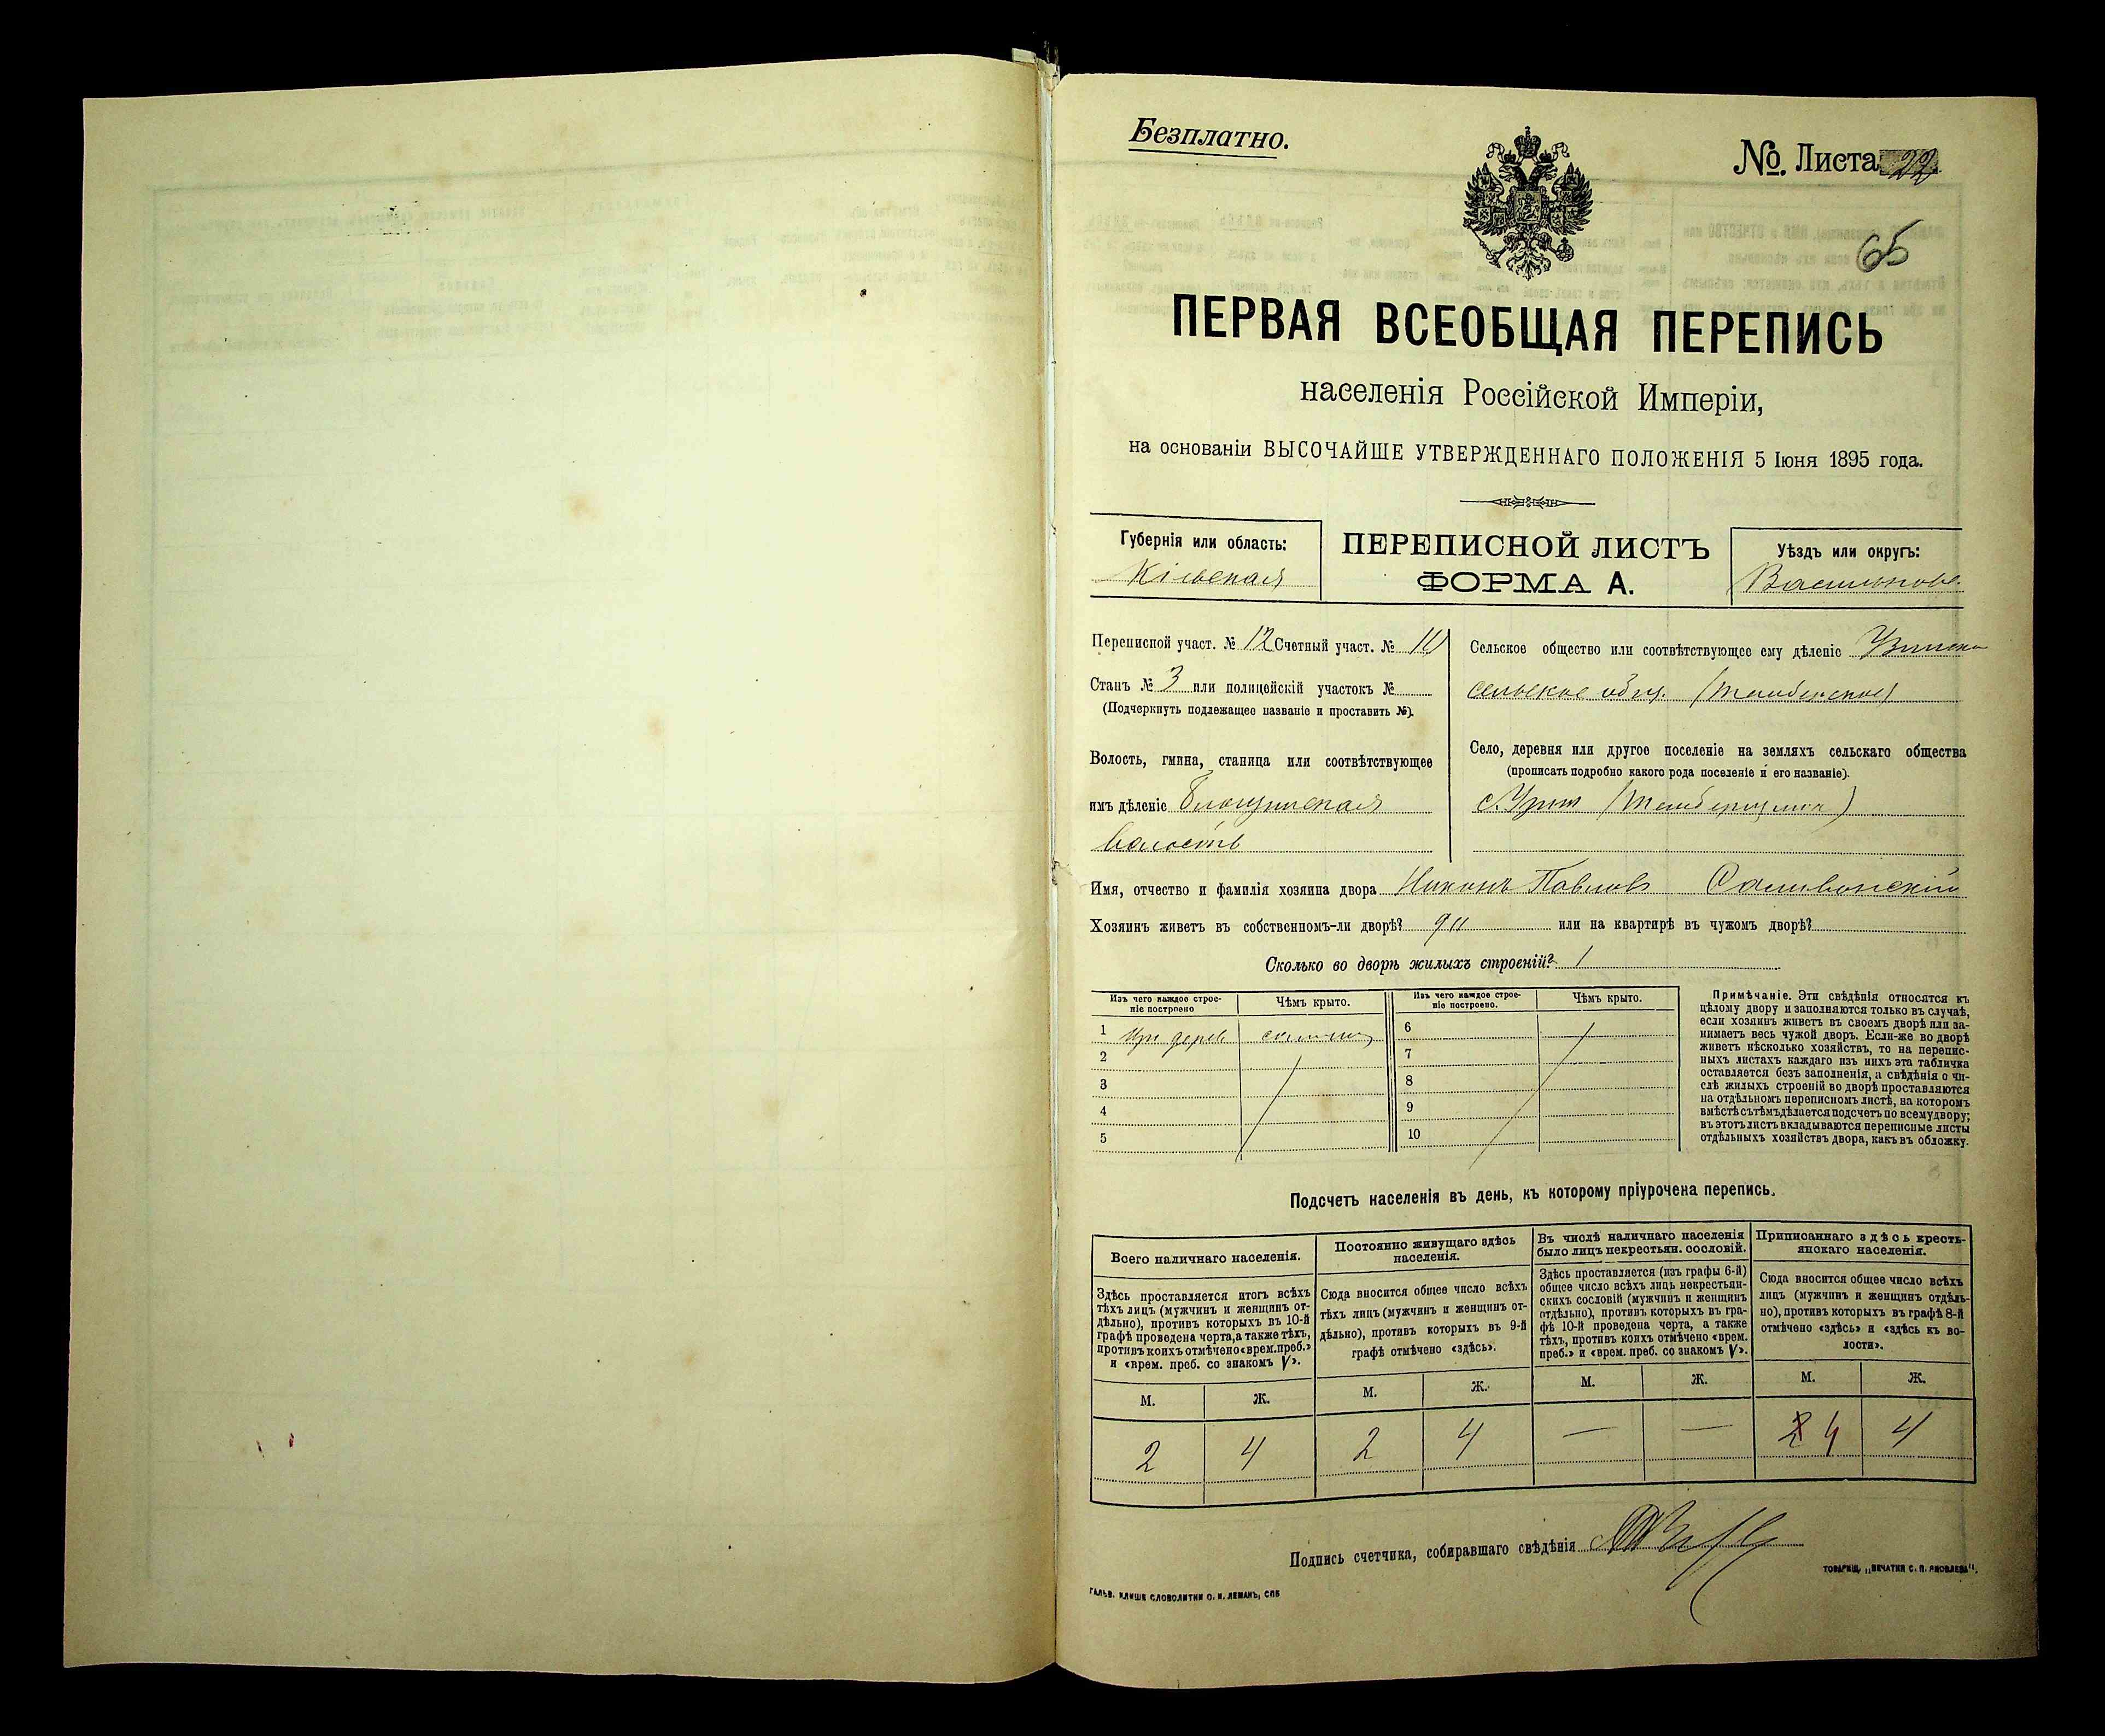 Безплатно.
№ Листа 22
65
ПЕРВАЯ ВСЕОБЩАЯ ПЕРЕПИСЬ
населенія Россійской Имперіи,
на основаніи ВЫСОЧАЙШЕ УТВЕРЖДЕННАГО ПОЛОЖЕНІЯ 5 Іюня 1895 года.
Губернія или область:
Кіевская
ПЕРЕПИСНОЙ ЛИСТЪ
ФОРМА А.
Уѣздъ или округъ:
Васильков.
Переписной участ. № 12 Счетный участ. № 10
Станъ № 3 или полицейскій участокъ №
(Подчеркнуть подлежащее названіе и проставить №).
Волость, гмина, станица или соотвѣтствующее
имъ дѣленіе
волость
Сельское общество или соотвѣтствующее ему дѣленіе
сельское общ.
Село, деревня или другое поселеніе на земляхъ сельскаго общества
(прописать подробно какого рода поселеніе и его названіе).
с.
Имя, отчество и фамилія хозяина двора Никонъ Павловъ
Хозяинъ живетъ въ собственномъ-ли дворѣ? или на квартирѣ въ чужомъ дворѣ?
Сколько во дворѣ жилыхъ строеній? 1
Изъ чего каждое строе-
ніе построено
Чѣмъ крыто.
Изъ чего каждое строе-
ніе построено.
Чѣмъ крыто.
1 дерев
2
3
4
5
6
7
8
9
10
Примѣчаніе. Эти свѣдѣнія относятся къ
цѣлому двору и заполняются только въ случаѣ,
если хозяинъ живетъ въ своемъ дворѣ или за-
нимаетъ весь чужой дворъ. Если-же во дворѣ
живетъ нѣсколько хозяйствъ, то на перепис-
ныхъ листахъ каждаго изъ нихъ эта табличка
оставляется безъ заполненія, а свѣдѣнія о чи-
слѣ жилыхъ строеній во дворѣ проставляются
на отдѣльномъ переписномъ листѣ, на которомъ
вмѣстѣ сътѣмъ дѣлается подсчетъ по всему двору;
въ этотъ листъ вкладываются переписные листы
отдѣльныхъ хозяйствъ двора, какъ въ обложку.
Подсчетъ населенія въ день, къ которому пріурочена перепись.
Всего наличнаго населенія.
Здѣсь проставляется итогъ всѣхъ
тѣхъ лицъ (мужчинъ и женщинъ от-
дѣльно), противъ которыхъ въ 10-й
графѣ проведена черта, а также тѣхъ,
противъ коихъ отмѣчено «врем. преб.»
и «врем. преб. со знакомъ V».
Постоянно живущаго здѣсь
населенія.
Сюда вносится общее число всѣхъ
тѣхъ лицъ (мужчинъ и женщинъ от-
дѣльно), противъ которыхъ въ 9-й
графѣ отмѣчено «здѣсь».
Въ числѣ наличнаго населенія
было лицъ некрестьян. сословій.
Здѣсь проставляется (изъ графы 6-й)
общее число всѣхъ лицъ некрестьян-
скихъ сословій (мужчинъ и женщинъ
отдѣльно), противъ которыхъ въ гра-
фѣ 10-й проведена черта, а также
тѣхъ, противъ коихъ отмѣчено «врем.
преб.» и «врем. преб. со знакомъ V».
Приписаннаго здѣсь кресть-
янскаго населенія.
Сюда вносится общее число всѣхъ
лицъ (мужчинъ и женщинъ отдѣль-
но), противъ которыхъ въ графѣ 8-й
отмѣчено «здѣсь» и «здѣсь къ во-
лости».
М. Ж. М. Ж. М. Ж. М. Ж.
2 4 2 4 — — 2 4 4
Подпись счетчика, собиравшаго свѣдѣнія
ГАЛЬВ. КЛИШЕ СЛОВОЛИТНИ О. И. ЛЕМАНЪ, СПБ
ТОВАРИЩ. „ПЕЧАТНЯ С. П. ЯКОВЛЕВА“.